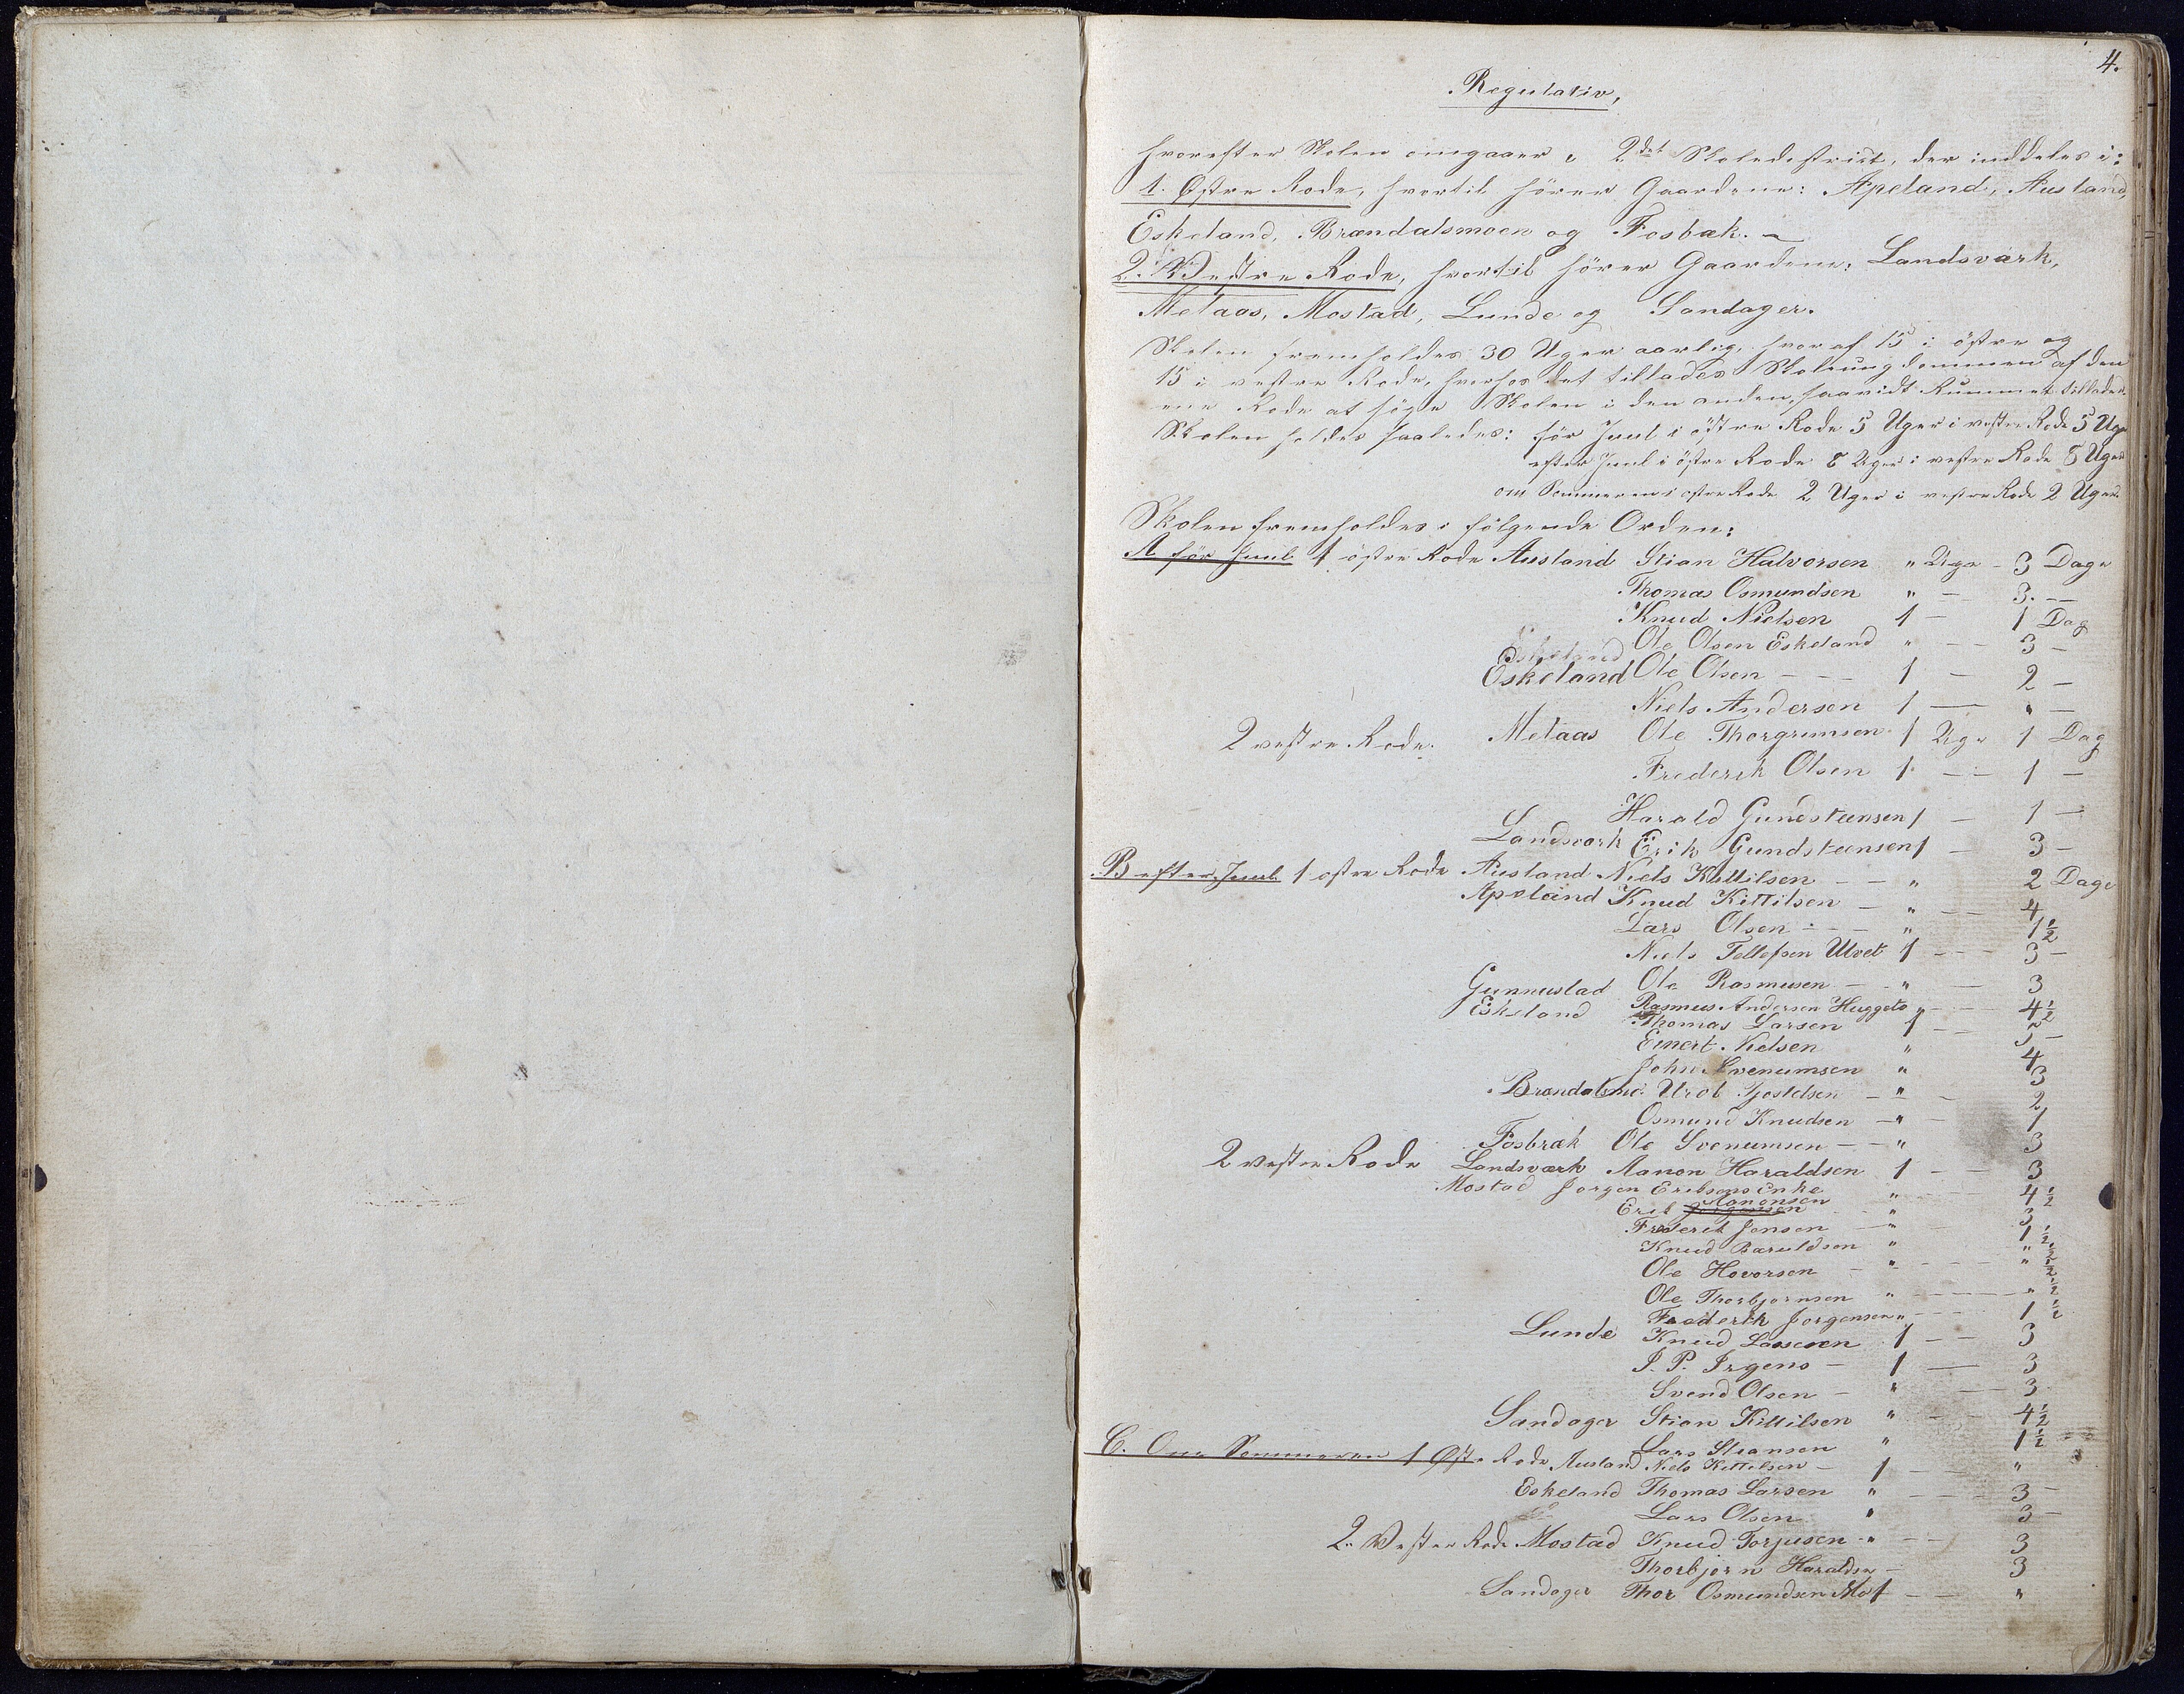 4.
Regulativ,
hvorefter Skolen omgaaer i 2det Skoledistrict, der inddeles i:
1. Østre Rode, hvortil hörer Gaardene: Apeland, Ausland,
Eskeland, Brændalsmoen og Fosbæk. —
2. Vestre Rode, hvortil hörer Gaardene: Landsværk,
Melaas, Mostad, Lunde og Sandager.
Skolen fremholdes 30 Uger aarlig, hvoraf 15 i östre og
15 i vestre Rode, hverhos det tillades Skoleungdommen af den
ene Rode at söge Skolen i den anden, saavidt Rummet tillader.
Skolen holdes saaledes: för Juul i östre Rode 5 Uger i vestre Rode 5 Uger
efter Juul i östre Rode 8 Uger i vestre Rode 8 Uger
om Sommeren i östre Rode 2 Uger i vestre Rode 2 Uger.
Skolen fremholdes i fölgende Orden:
A för Juul 1 östre Rode Ausland Stian Halvorsen " Uge - 3 Dage
Thomas Osmundsen " — 3. —
Knud Nielsen 1 — 1 Dag
Ole Olsen Eskeland " — 3 —
Eskeland Ole Olsen - - - 1 — 2 —
Niels Andersen 1 — " —
2 vestre Rode. Melaas Ole Thorgrimsen 1 Uge 1 Dag
Frederik Olsen 1 — 1 —
Harald Gundsteensen 1 — 1 —
Landsværk Erik Gundsteensen 1 — 3 —
B efter Juul 1 östre Rode Ausland Niels Kittilsen — " 2 Dage
Apeland Knud Kittilsen — " — 4
Lars Olsen - - - " 1½
Niels Tellefsen Ulvet 1 — 3 —
Gunnustad Ole Rasmusen — " — 3
Eskeland Rasmus Andersen Huggeto " — 4½
Thomas Larsen 1 — 3 —
Einert Nielsen " 4
John Svenumsen " 3
Brændalsmo. Gjeruldsen — " — 2
Osmund Knudsen — " — 1
Fosbræk Ole Svenumsen — " 3
2 vestre Rode Landsværk Aanon Haraldsen 1 — 3
Mostad Jorgen Eriksens Enke " — 4½
Erik Aanonsen " 3
Frederik Jensen — " — 1½
Knud Baruldsen " — " ½
Ole Hovorsen — " — " ½
Ole Thorbjornsen " — " ½
Frederik Jorgensen " — 1½
Lunde Knud Lassesen 1 — 3
J. P. Irgens — 1 — 3
Svend Olsen — " — 3
Sandager Stian Kittilsen " — 4½
Lars Stiansen " 1½
C. Om Sommeren 1 Øst. Rode Ausland Niels Kittilsen — 1 — "
Eskeland Thomas Larsen " — 3 —
Lars Olsen " 3 —
2. Vestre Rode Mostad Knud Torjusen " — 3
Thorbjørn Haraldsen — 3
Sandager Thor Osmundsen Mo 1 — "